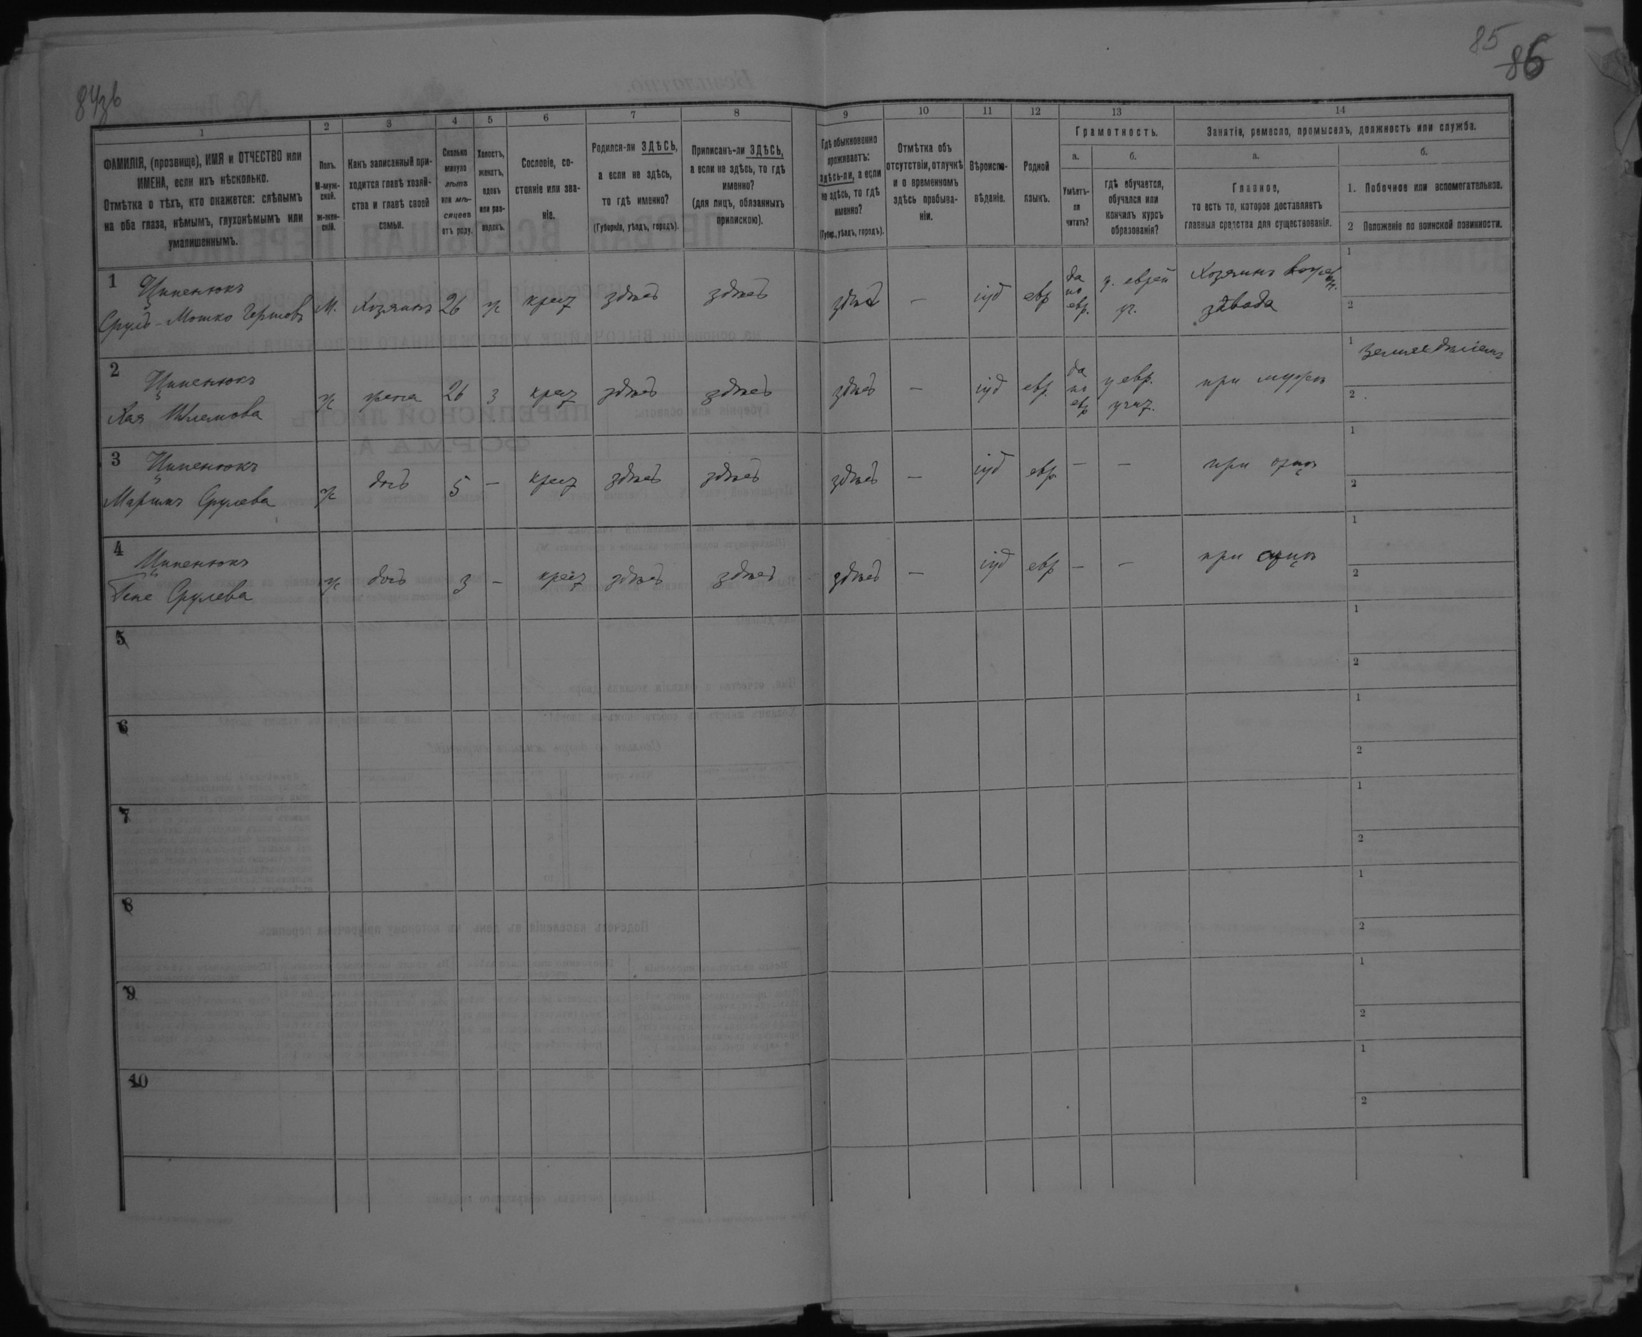 85
86
1
2
3
4
5
6
7
8
9
10
11
12
13
14
ФАМИЛІЯ, (прозвище), ИМЯ и ОТЧЕСТВО или
ИМЕНА, если ихъ нѣсколько.
Отмѣтка о тѣхъ, кто окажется: слѣпымъ
на оба глаза, нѣмымъ, глухонѣмымъ или
умалишеннымъ.
Полъ.
М-муж-
ской.
ж-жен-
скій.
Какъ записанный при-
ходится главѣ хозяй-
ства и главѣ своей
семьи.
Сколько
минуло
лѣтъ
или мѣ-
сяцевъ
отъ роду.
Холостъ,
женатъ,
вдовъ
или раз-
веденъ.
Сословіе, со-
стояніе или зва-
ніе.
Родился-ли ЗДѢСЬ,
а если не здѣсь,
то гдѣ именно?
(Губернія, уѣздъ, городъ).
Приписанъ-ли ЗДѢСЬ,
а если не здѣсь, то гдѣ
именно?
(для лицъ, обязанныхъ
припискою).
Гдѣ обыкновенно
проживаетъ:
здѣсь-ли, а если
не здѣсь, то гдѣ
именно?
(Губер., уѣздъ, городъ).
Отмѣтка объ
отсутствіи, отлучкѣ
и о временномъ
здѣсь пребыва-
ніи.
Вѣроиспо-
вѣданіе.
Родной
языкъ.
Грамотность.
а.
б.
Умѣетъ-
ли
читать?
гдѣ обучается,
обучался или
кончилъ курсъ
образованія?
Занятіе, ремесло, промыселъ, должность или служба.
а.
б.
Главное,
то есть то, которое доставляетъ
главныя средства для существованія.
1. Побочное или вспомогательное.
2 Положеніе по воинской повинности.
1
Ципенюкъ
Сруль-Мошко Гершовъ
М.
Хозяинъ
26
ж
крест
здѣсь
здѣсь
здѣсь
—
іуд
евр
да
по
евр.
у. еврей
уч.
Хозяинъ
завода
1
2
2
Ципенюкъ
Хая Шлемова
ж
жена
26
з
крест
здѣсь
здѣсь
здѣсь
—
іуд
евр.
да
по
евр
у евр.
учит.
при мужѣ
1 Земледѣліемъ
2
3
Ципенюкъ
Мариамъ Срулева
ж
дочь
5
—
крест
здѣсь
здѣсь
здѣсь
—
іуд
евр
—
—
при отцѣ
1
2
4
Ципенюкъ
Срулева
ж
дочь
3
—
крест
здѣсь
здѣсь
здѣсь
—
іуд
евр
—
—
при отцѣ
1
2
5
1
2
6
1
2
7
1
2
8
1
2
9
1
2
10
1
2